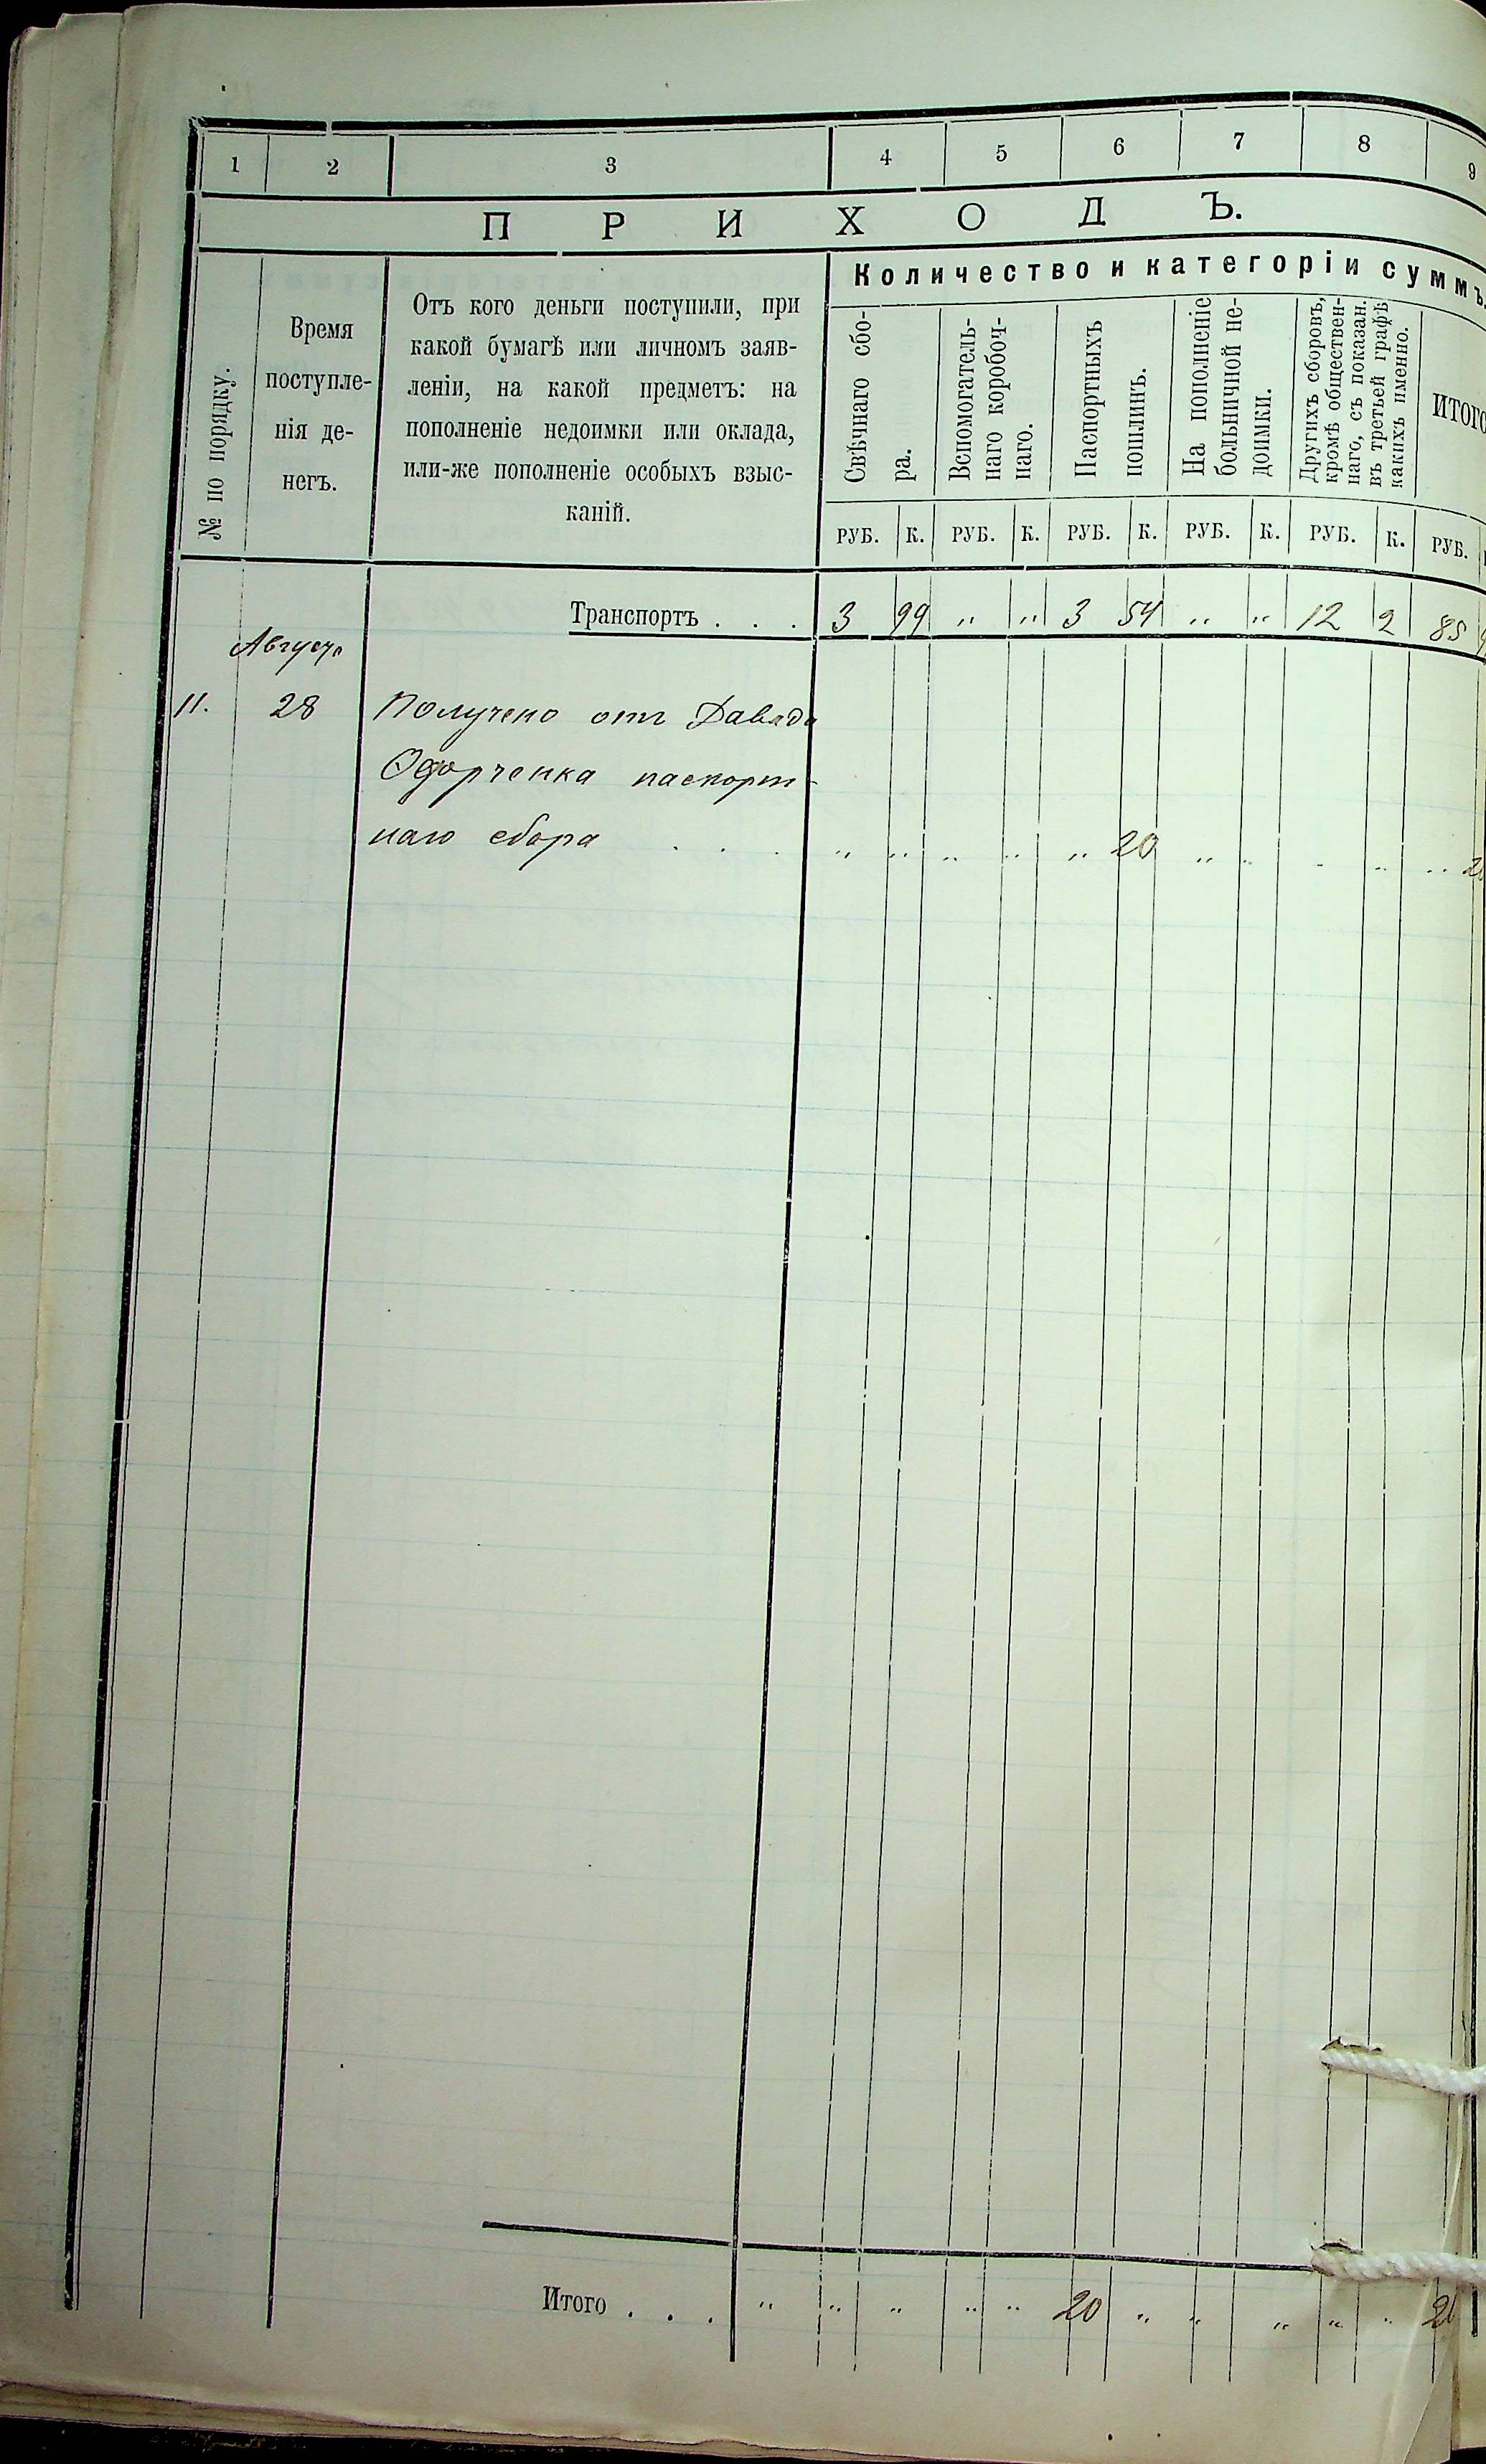 1 2 3 4 5 6 7 8 9
ПРИХОДЪ.
№ по порядку.
Время
поступле-
нія де-
негъ.
Отъ кого деньги поступили, при
какой бумагѣ или личномъ заяв-
леніи, на какой предметъ: на
пополненіе недоимки или оклада,
или-же пополненіе особыхъ взыс-
каній.
Количество и категоріи суммъ.
Свѣчнаго сбо-
ра.
Вспомогатель-
наго коробоч-
наго.
Паспортныхъ
пошлинъ.
На пополненіе
больничной не-
доимки.
Другихъ сборовъ,
кромѣ обществен-
наго, съ показан.
въ третьей графѣ
какихъ именно.
ИТОГО
РУБ. К. РУБ. К. РУБ. К. РУБ. К. РУБ. К. РУБ.
Транспортъ . . . 3 99 " " 3 54 " " 12 2 85
Августа
11. 28 Получено отъ Давида
паспорт-
наго сбора . . . " " " " " 20 " " " " "
Итого . . . " " " " " 20 " " " " "